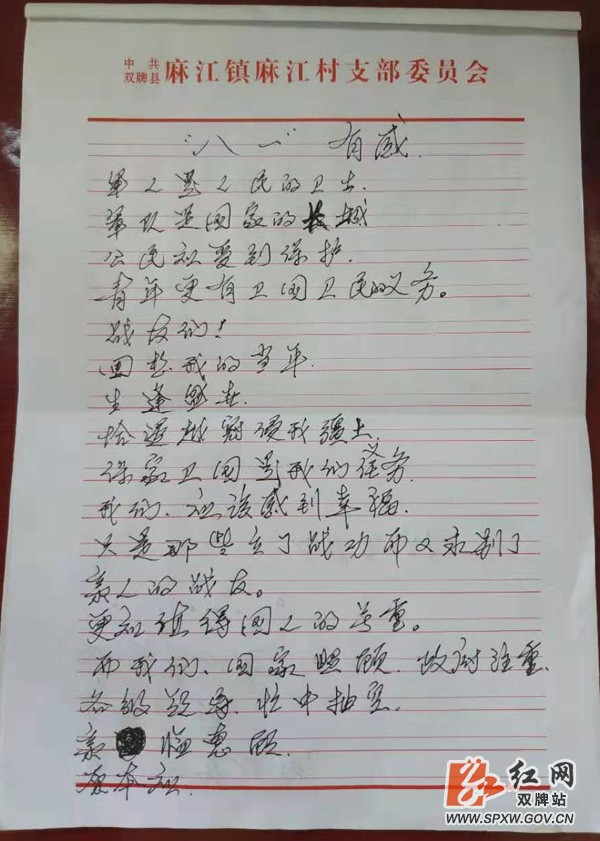 中共
双牌县
麻江镇麻江村支部委员会
“八一”有感.
军人是人民的卫士.
军队是国家的长城
公民社要到保护.
青年更有卫国卫民的义务。
战友们！
回想我的当年.
生逢盛世.
恰遇越寇侵我疆土.
保家卫国是我们任务.
我们.应该感到幸福.
只是那些立了战功而又永别了
亲人的战友。
更应值得国人的尊重。
而我们、国家照顾.政府注重.
各级领导.忙中抽空.
亲临惠顾.
原本应.
红网
双牌站
WWW.SPXW.GOV.CN